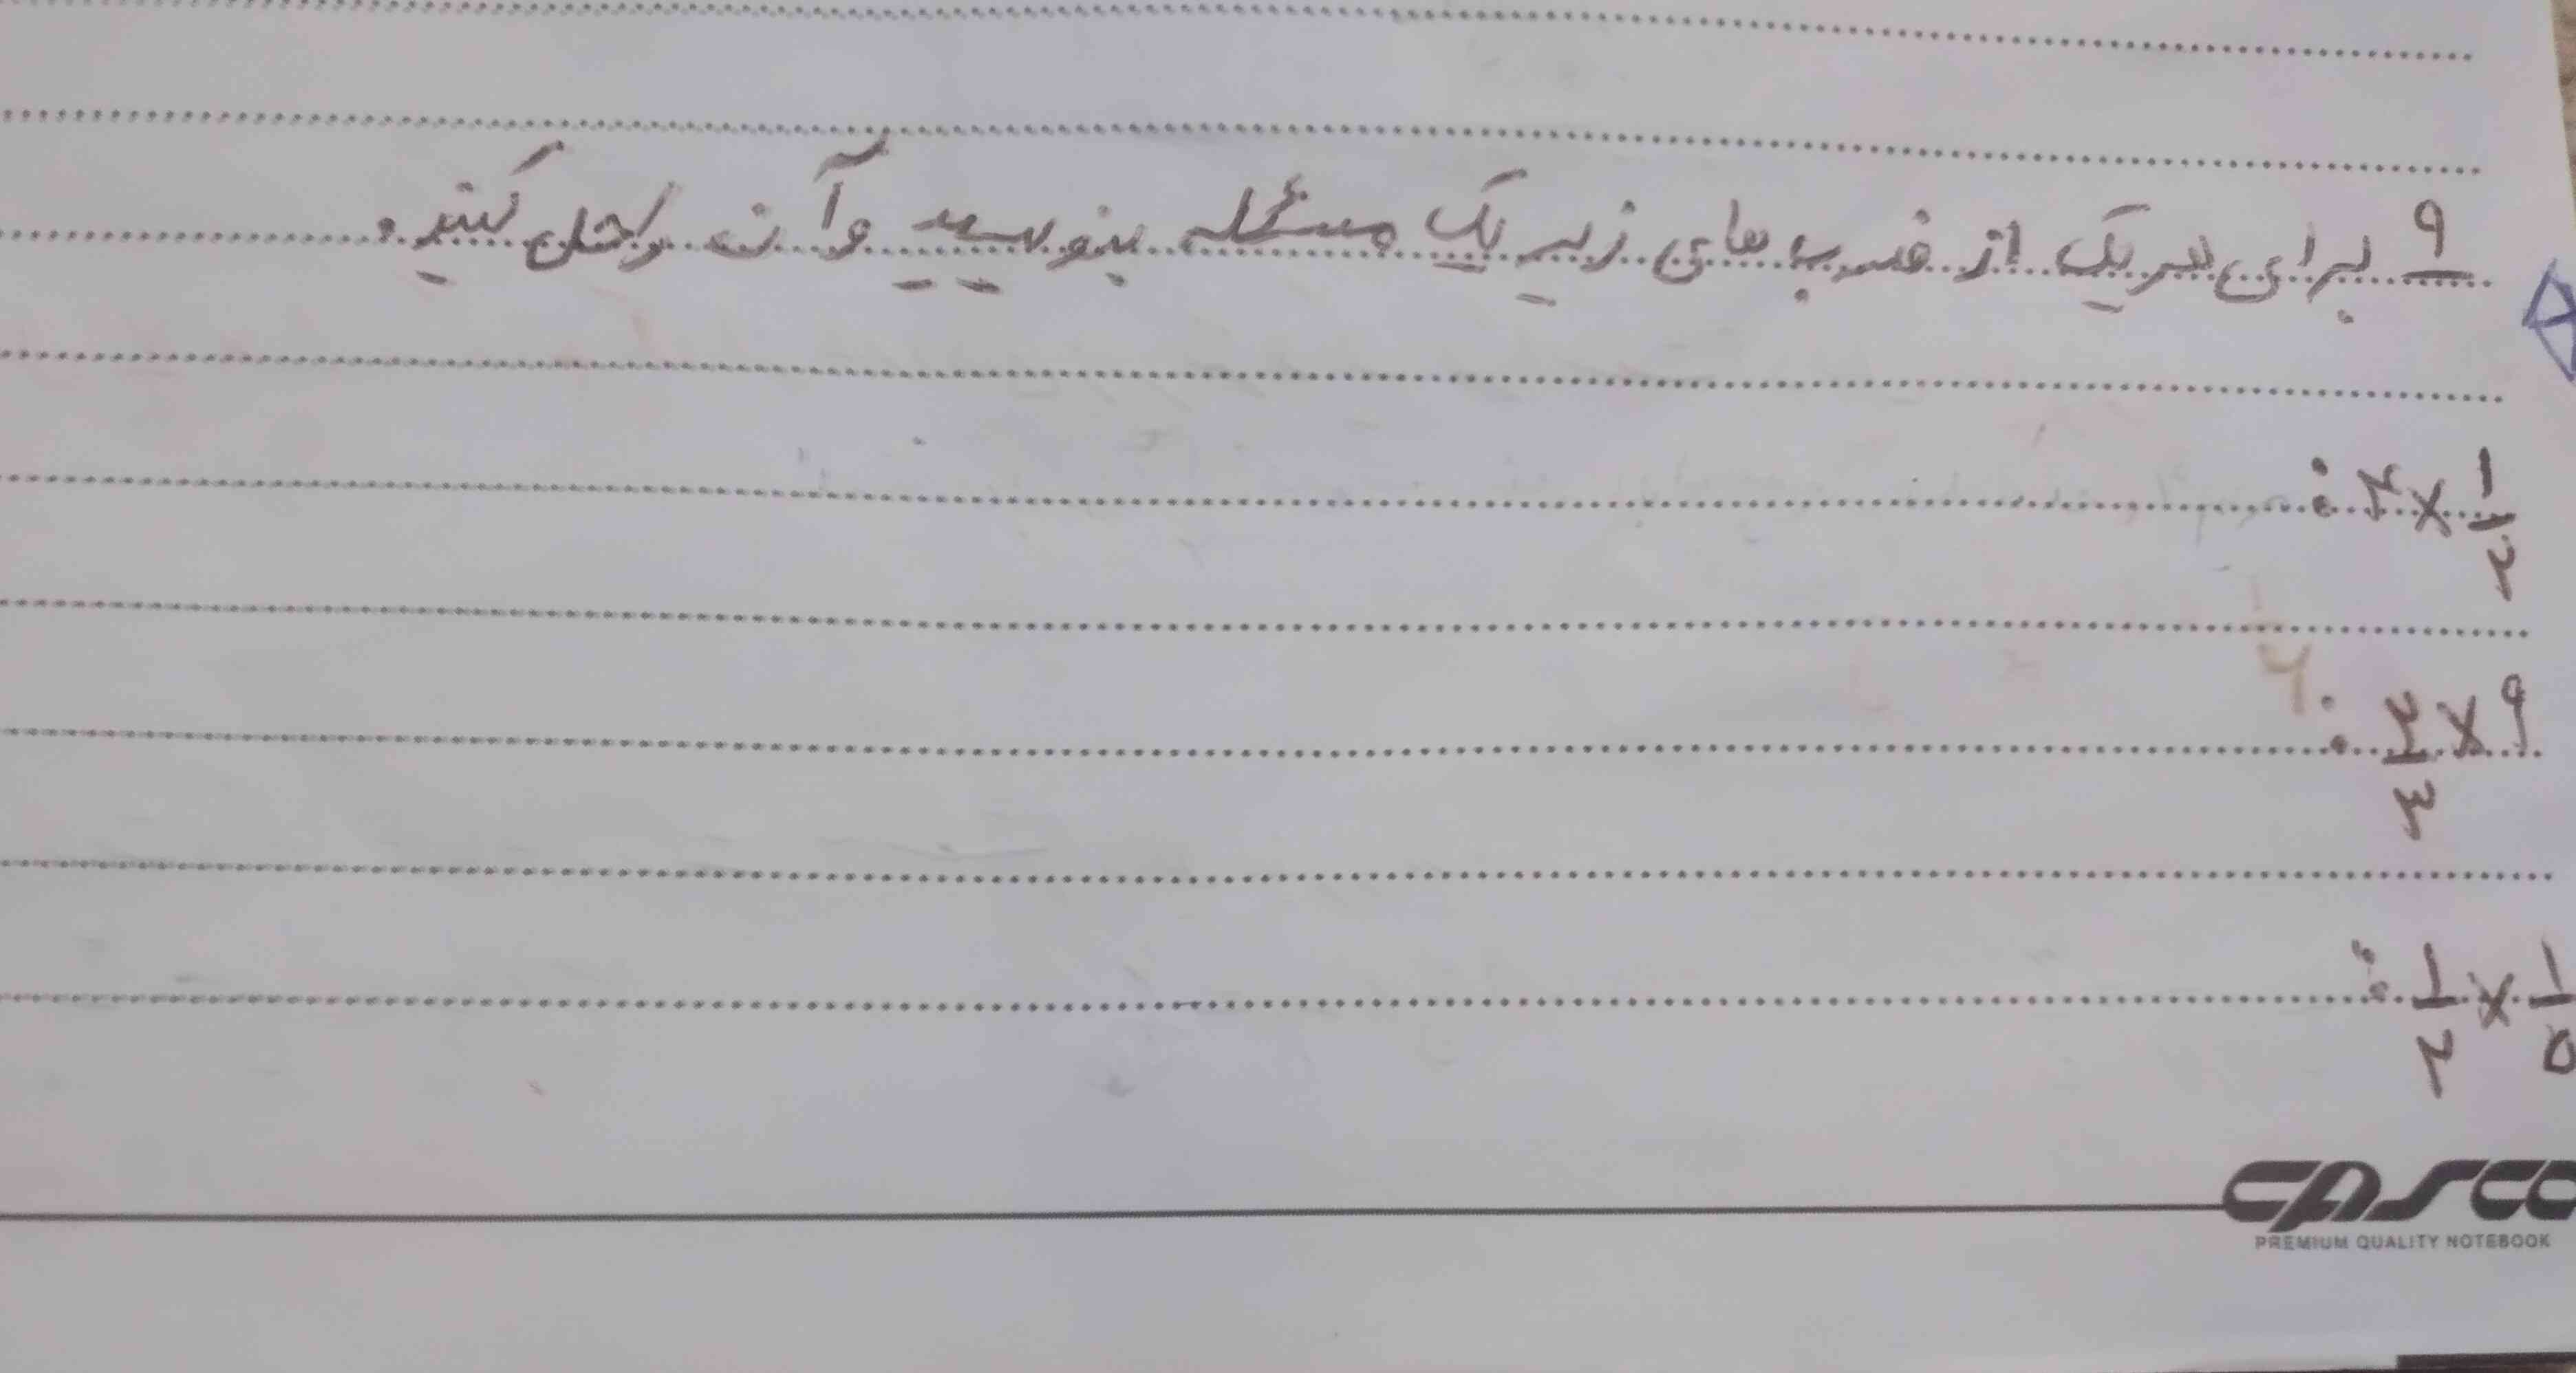 ۹ برای هر یک از ضرب های زیر یک مسئله بنویسید و آن راحل کنید.
۱/۲ × ۴ :
۹ × ۲/۳ :
۱/۵ × ۱/۲ :
CASCO
PREMIUM QUALITY NOTEBOOK